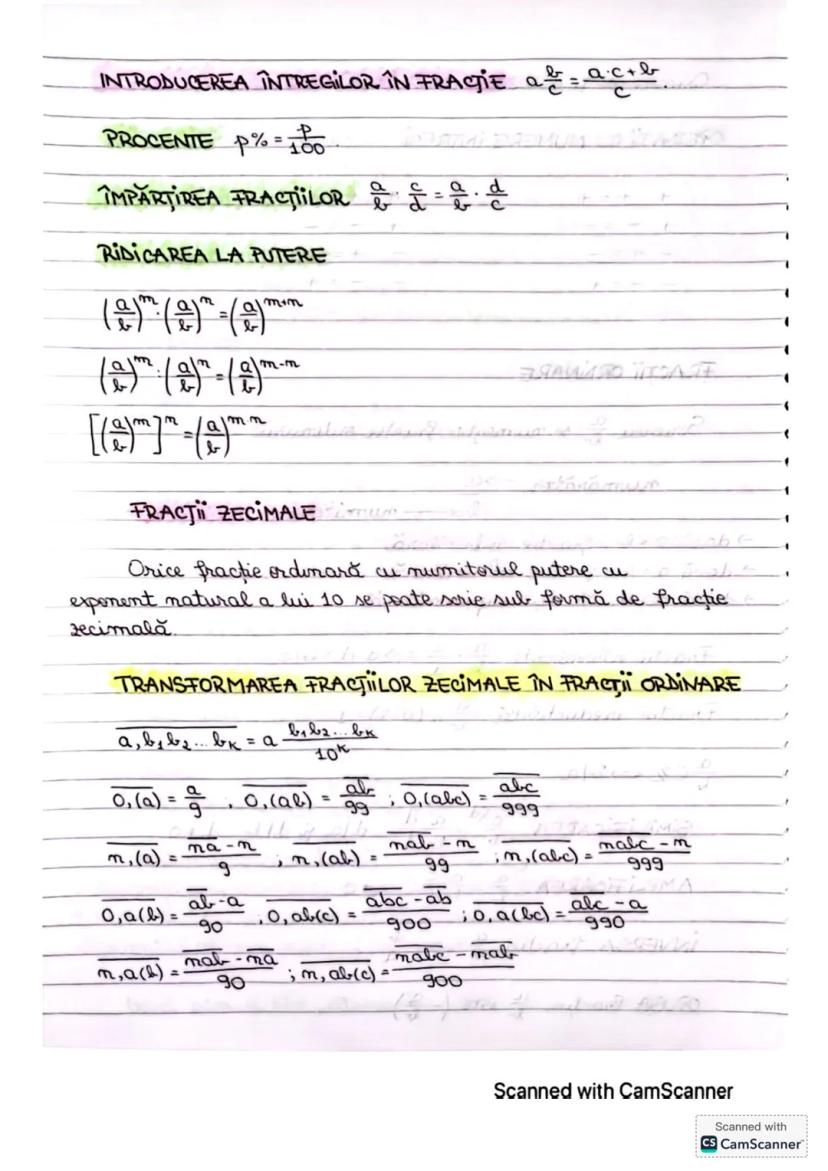 INTRODUCEREA ÎNTREGILOR ÎN FRACȚIE a b/c = (a·c+b)/c.
PROCENTE p% = p/100.
ÎMPĂRȚIREA FRACȚIILOR a/b · c/d = a/b · d/c
RIDICAREA LA PUTERE
(a/b)^m · (a/b)^n = (a/b)^(m+n)
(a/b)^m : (a/b)^n = (a/b)^(m-n)
[(a/b)^m]^n = (a/b)^(m·n)
FRACȚII ZECIMALE
Orice fracție ordinară cu numitorul putere cu
exponent natural a lui 10 se poate scrie sub formă de fracție
zecimală.
TRANSFORMAREA FRACȚIILOR ZECIMALE ÎN FRACȚII ORDINARE
a,b₁b₂...bₖ = a b₁b₂...bₖ/10^k
0,(a) = a/9 , 0,(ab) = ab/99 ; 0,(abc) = abc/999
n,(a) = (na-n)/9 ; n,(ab) = (nab-n)/99 ; n,(abc) = (nabc-n)/999
0,a(b) = (ab-a)/90 ; 0,ab(c) = (abc-ab)/900 ; 0,a(bc) = (abc-a)/990
n,a(b) = (nab-na)/90 ; n,ab(c) = (nabc-nab)/900
Scanned with CamScanner
Scanned with
CS CamScanner